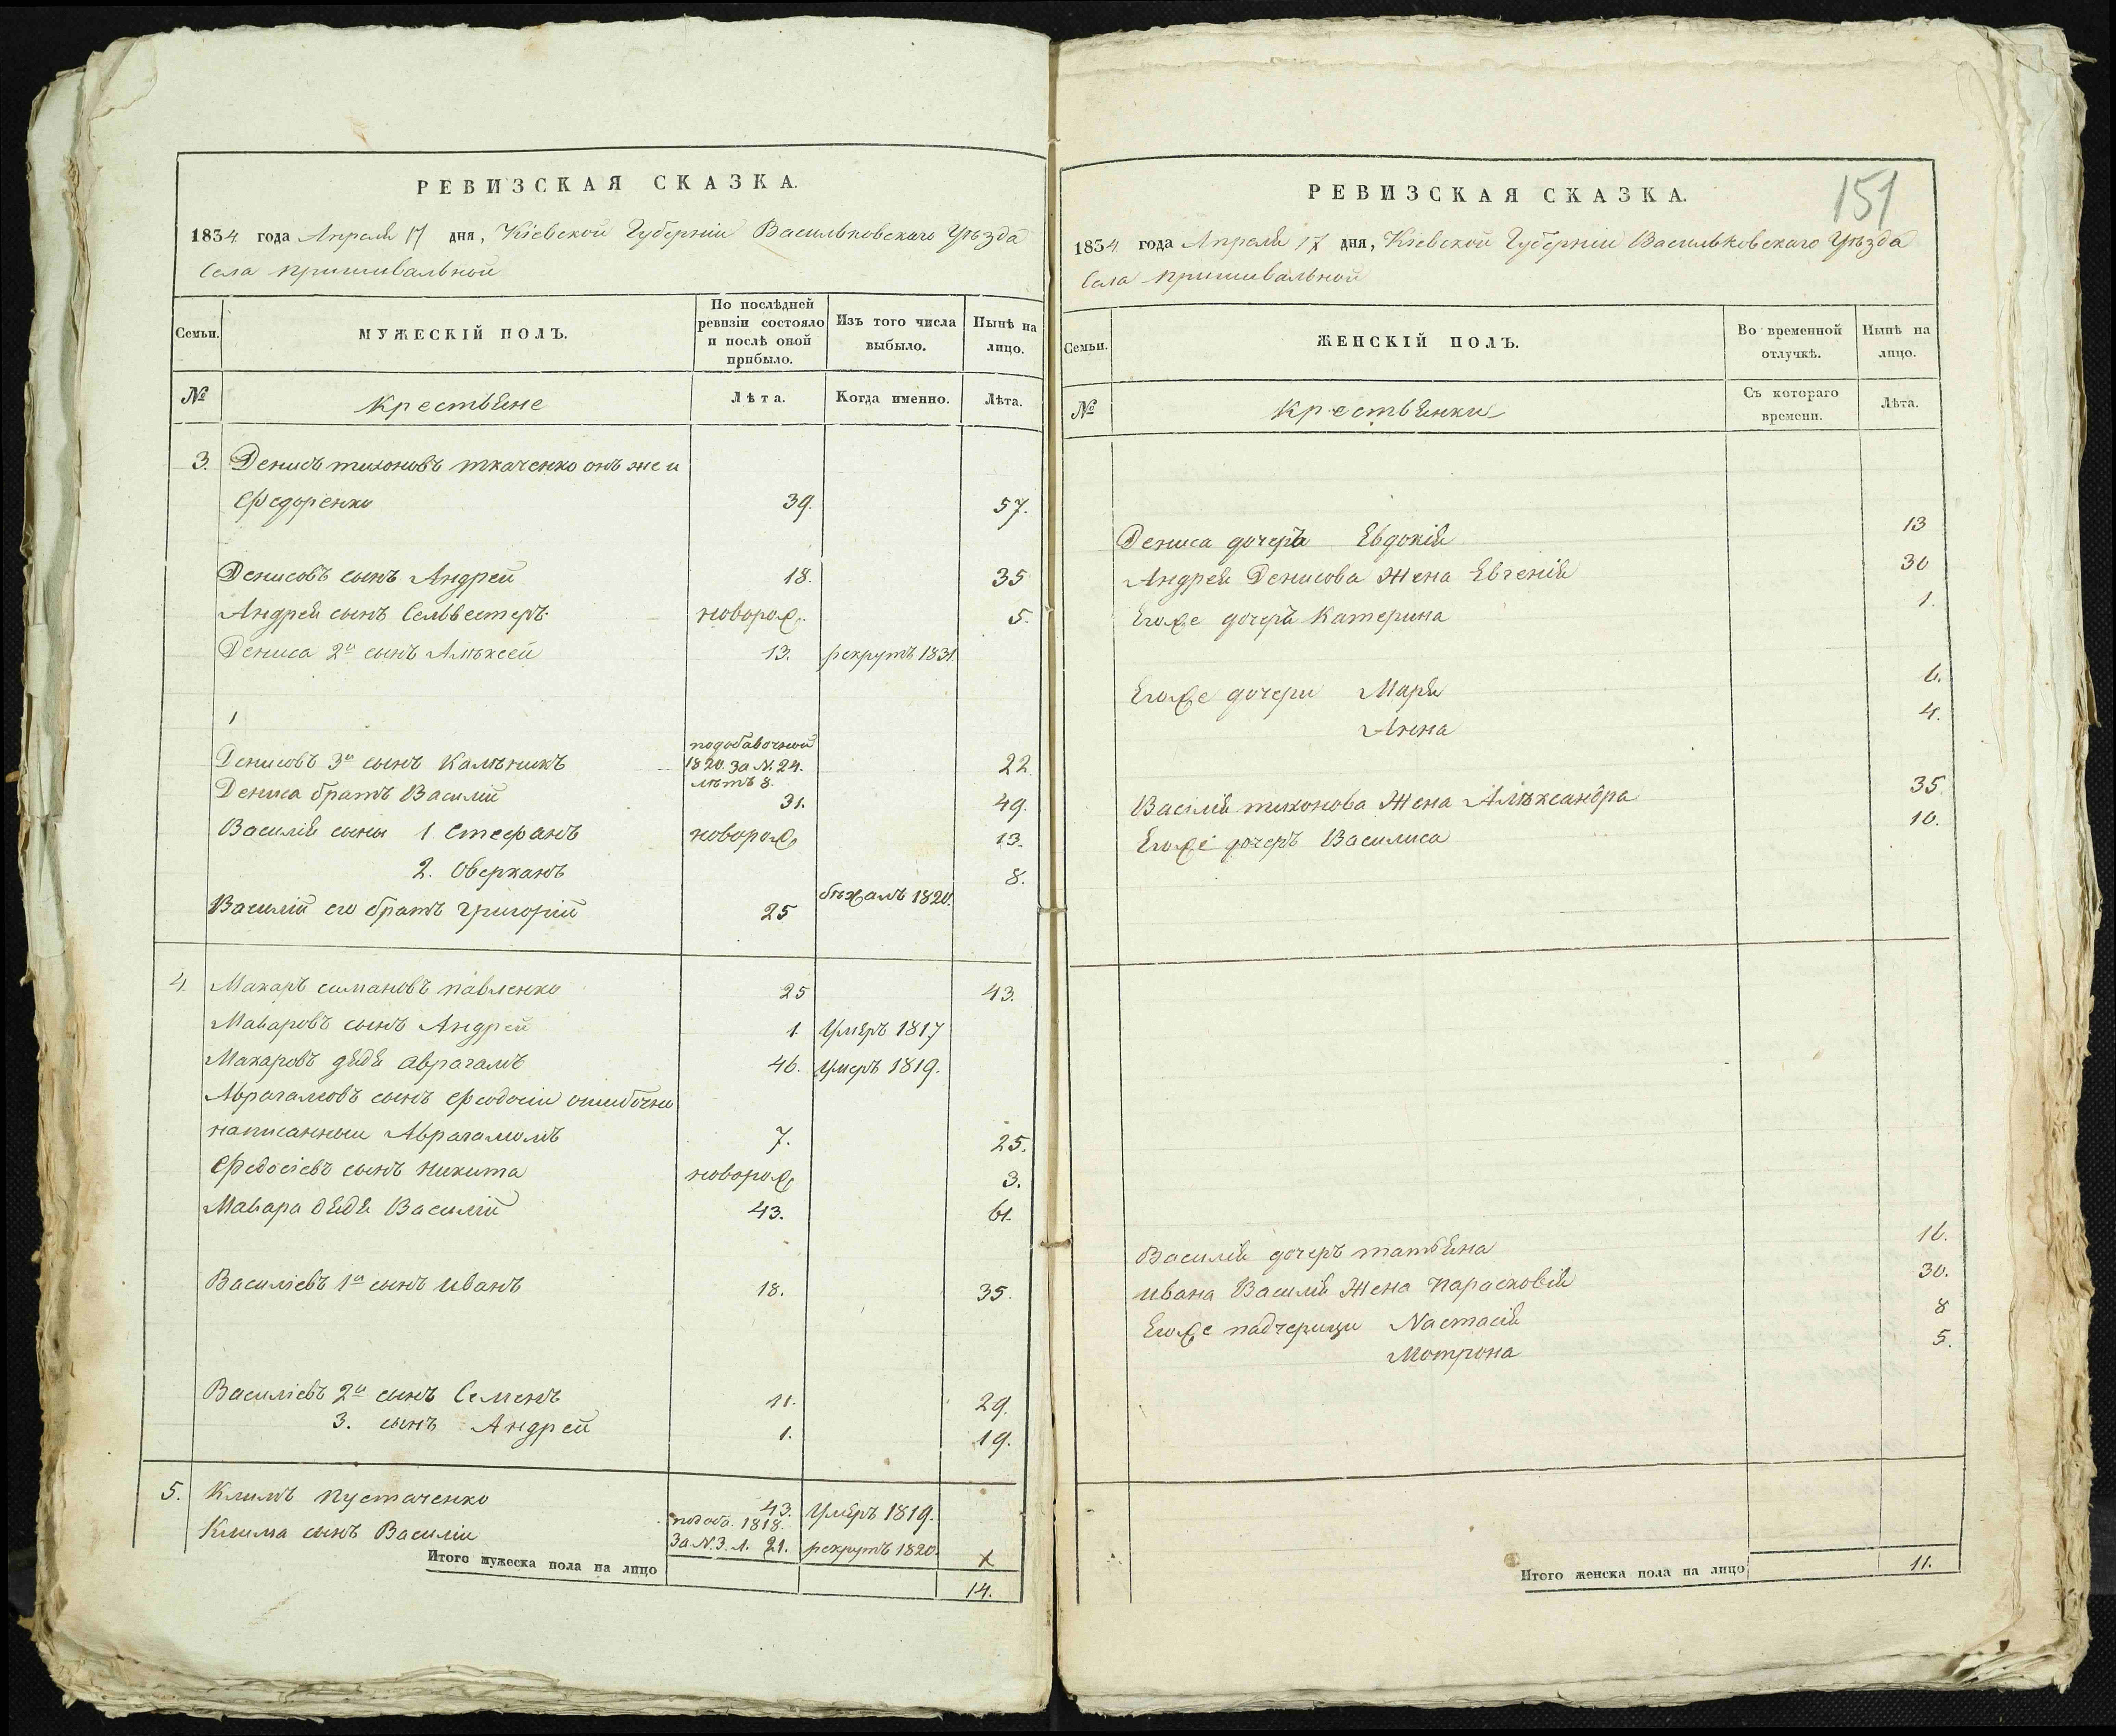 РЕВИЗСКАЯ СКАЗКА.
1834 года Апреля 17 дня, Кіевской Губерніи Васильковскаго Уѣзда
Села пришивальной
Семьи.
МУЖЕСКІЙ ПОЛЪ.
По послѣдней ревизіи состояло и послѣ оной прибыло.
Изъ того числа выбыло.
Нынѣ на лицо.
№
Крестьяне
Лѣта.
Когда именно.
Лѣта.
3. Денисъ тихоновъ ткаченко онъ же и
Федоренко 39. 57.
Денисовъ сынъ Андрей 18. 35
Андрея сынъ Селвестеръ новорож. 5.
Дениса 2й сынъ Алѣксей 13. рекрутъ 1831.
Денисовъ 3й сынъ Калѣникъ подобавочной 1820. За N. 24. лѣтъ 8. 22
Дениса братъ Василій 31. 49.
Василія сыны 1 Стефанъ новорож 13.
2. Оверкянъ 8.
Василій его братъ Григорій 25 бѣжалъ 1820.
4. Макаръ симановъ павленко 25 43.
Макаровъ сынъ Андрей 1. Умеръ 1817
Макаровъ дядя аврагамъ 46. Умеръ 1819.
Аврагамовъ сынъ Феодосій ошибочно
написанный Аврагамомъ 7. 25.
Федосіевъ сынъ Никита новорож 3.
Макара дядя Василій 43. 61.
Василіевъ 1й сынъ иванъ 18. 35.
Василіевъ 2й сынъ Семенъ 11. 29.
3. сынъ Андрей 1. 19.
5. Климъ пустаченко 43. Умеръ 1819.
Клима сынъ Василій подоба. 1818. За N. 3. л. 21. рекрутъ 1820.
Итого мужеска пола на лицо 14.
151
РЕВИЗСКАЯ СКАЗКА.
1834 года Апреля 17 дня, Кіевской Губерніи Васильковскаго Уѣзда
Села пришивальной
Семьи.
ЖЕНСКІЙ ПОЛЪ.
Во временной отлучкѣ.
Нынѣ на лицо.
№
Крестьянки
Съ котораго времени.
Лѣта.
Дениса дочеръ Евдокія 13
Андрея Денисова Жена Евгенія 30
Егоже дочеръ Катерина 1.
Егоже дочери Маря 6.
Анна 4.
Василія тихонова Жена Алѣксандра 35
Егоже дочеръ Василиса 10.
Василія дочеръ татьяна 16.
ивана Василія Жена Парасковія 30.
Егоже падчерици Настасія 8
Мотрона 5.
Итого женска пола на лицо 11.